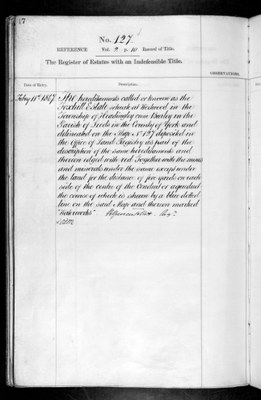 No. 127.
REFERENCE Vol. 2 p. 10 Record of Title.
The Register of Estates with an Indefeasible Title.
OBSERVATIONS.
Date of Entry.
Description.
Feby 11th 1867.
The hereditaments called or known as the
Foxhill Estate situate at Weetwood in the
Township of Headingley cum Burley in the
Parish of Leeds in the County of York and
delineated on the Map No 127 deposited in
the Office of Land Registry as part of the
description of the same hereditaments and
thereon edged with red. Together with the mines
and minerals under the same except under
the land for the distance of five yards on each
side of the centre of the Conduit or aqueduct
the course of which is shewn by a blue dotted
line on the said Map and thereon marked
"Waterworks"